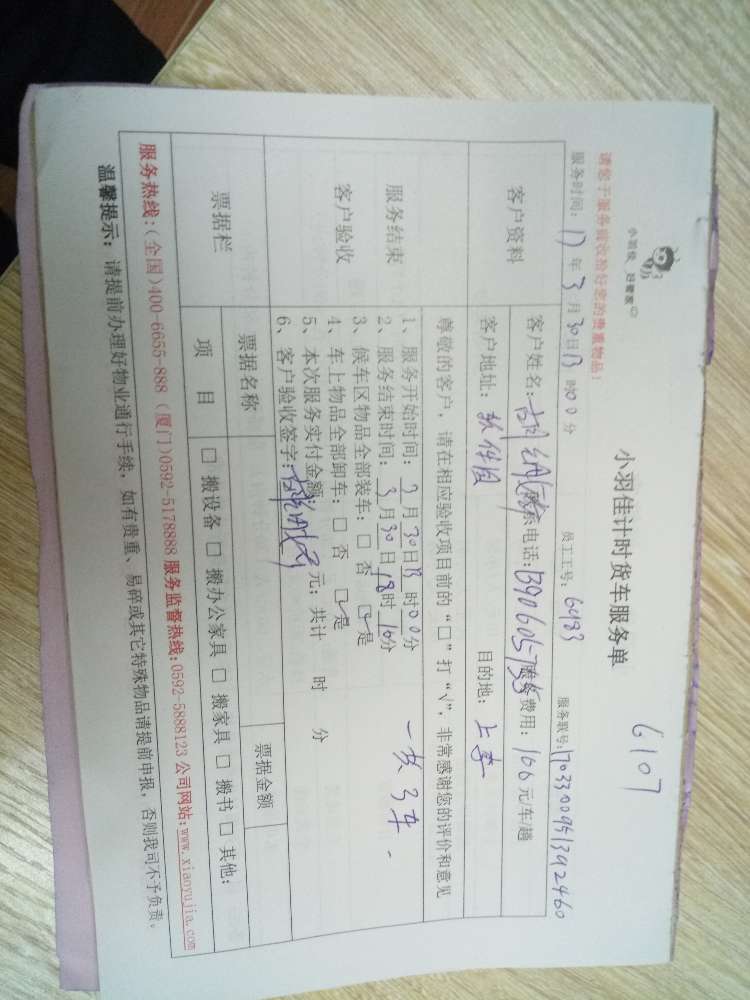 6107
小羽佳 好管家
小羽佳计时货车服务单
请您于服务前收拾好您的贵重物品！
服务时间：17 年 3 月 30 日 13 时 00 分 员工工号：6483 服务联号：
客户资料
客户姓名： 电话：13906057 服务费用：166 元/车/趟
客户地址：软件园 目的地：上李
服务结束
客户验收
尊敬的客户，请在相应验收项目前的“□”打“√”，非常感谢您的评价和意见
1、服务开始时间：3 月 30 日 13 时 00 分
2、服务结束时间：3 月 30 日 18 时 10 分
3、候车区物品全部装车：□ 否 ☑ 是
4、车上物品全部卸车：□ 否 ☑ 是
5、本次服务实付金额： 元；共计 时 分
6、客户验收签字：
一共3车.
票据栏
票据名称 票据金额
项 目 □ 搬设备 □ 搬办公家具 □ 搬家具 □ 搬书 □ 其他：
服务热线：(全国)400-6655-888 (厦门)0592-5178888 服务监督热线：0592-5888123 公司网站：www.xiaoyujia.com
温馨提示：请提前办理好物业通行手续，如有贵重、易碎或其它特殊物品请提前申报，否则我司不予负责。